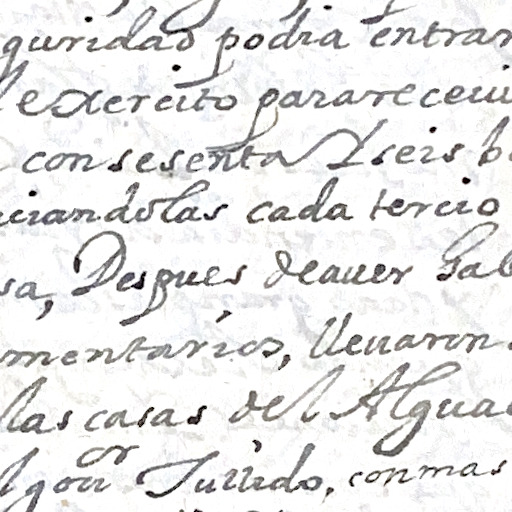 guridad podia entrar
l exercito para receui
con sesenta Yseis b
ciandolas cada tercio
sa, Despues deauer hal
mentarios, lleuaron
las casas del Algua
l gor Tullido, con mas